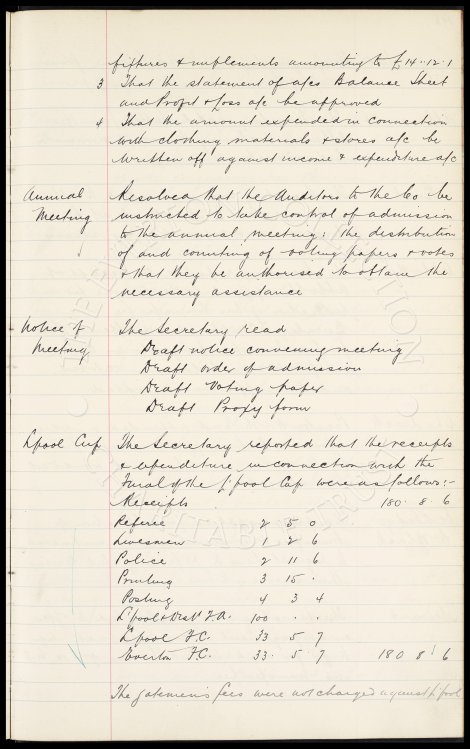 fixtures & implements amounting to £14..12.1
3 That the statement of a/cs Balance Sheet
and Profit & Loss a/c be approved
4 That the amount expended in connection
with clothing materials & stores a/c be
written off against income & expenditure a/c
Annual Meeting
Resolved that the Auditors to the Co be
instructed to take control of admission
to the annual meeting: the distribution
of and counting of voting papers & votes
& that they be authorised to obtain the
necessary assistance
Notice of Meeting
The Secretary read
Draft notice convening meeting
Draft order of admission
Draft Voting paper
Draft Proxy form
L'pool Cup
The Secretary reported that the receipts
& expenditure in connection with the
Final of the L'pool Cup were as follows:-
Receipts 180 . 8 . 6
Referee 2 5 0
Linesmen 1 2 6
Police 2 11 6
Printing 3 15 .
Posting 4 3 4
L'pool & Dist F.A. 100 . .
L'pool F.C. 33 5 7
Everton F.C. 33. 5 7 180 8 6
The gatemen's fees were not charged against L'pool